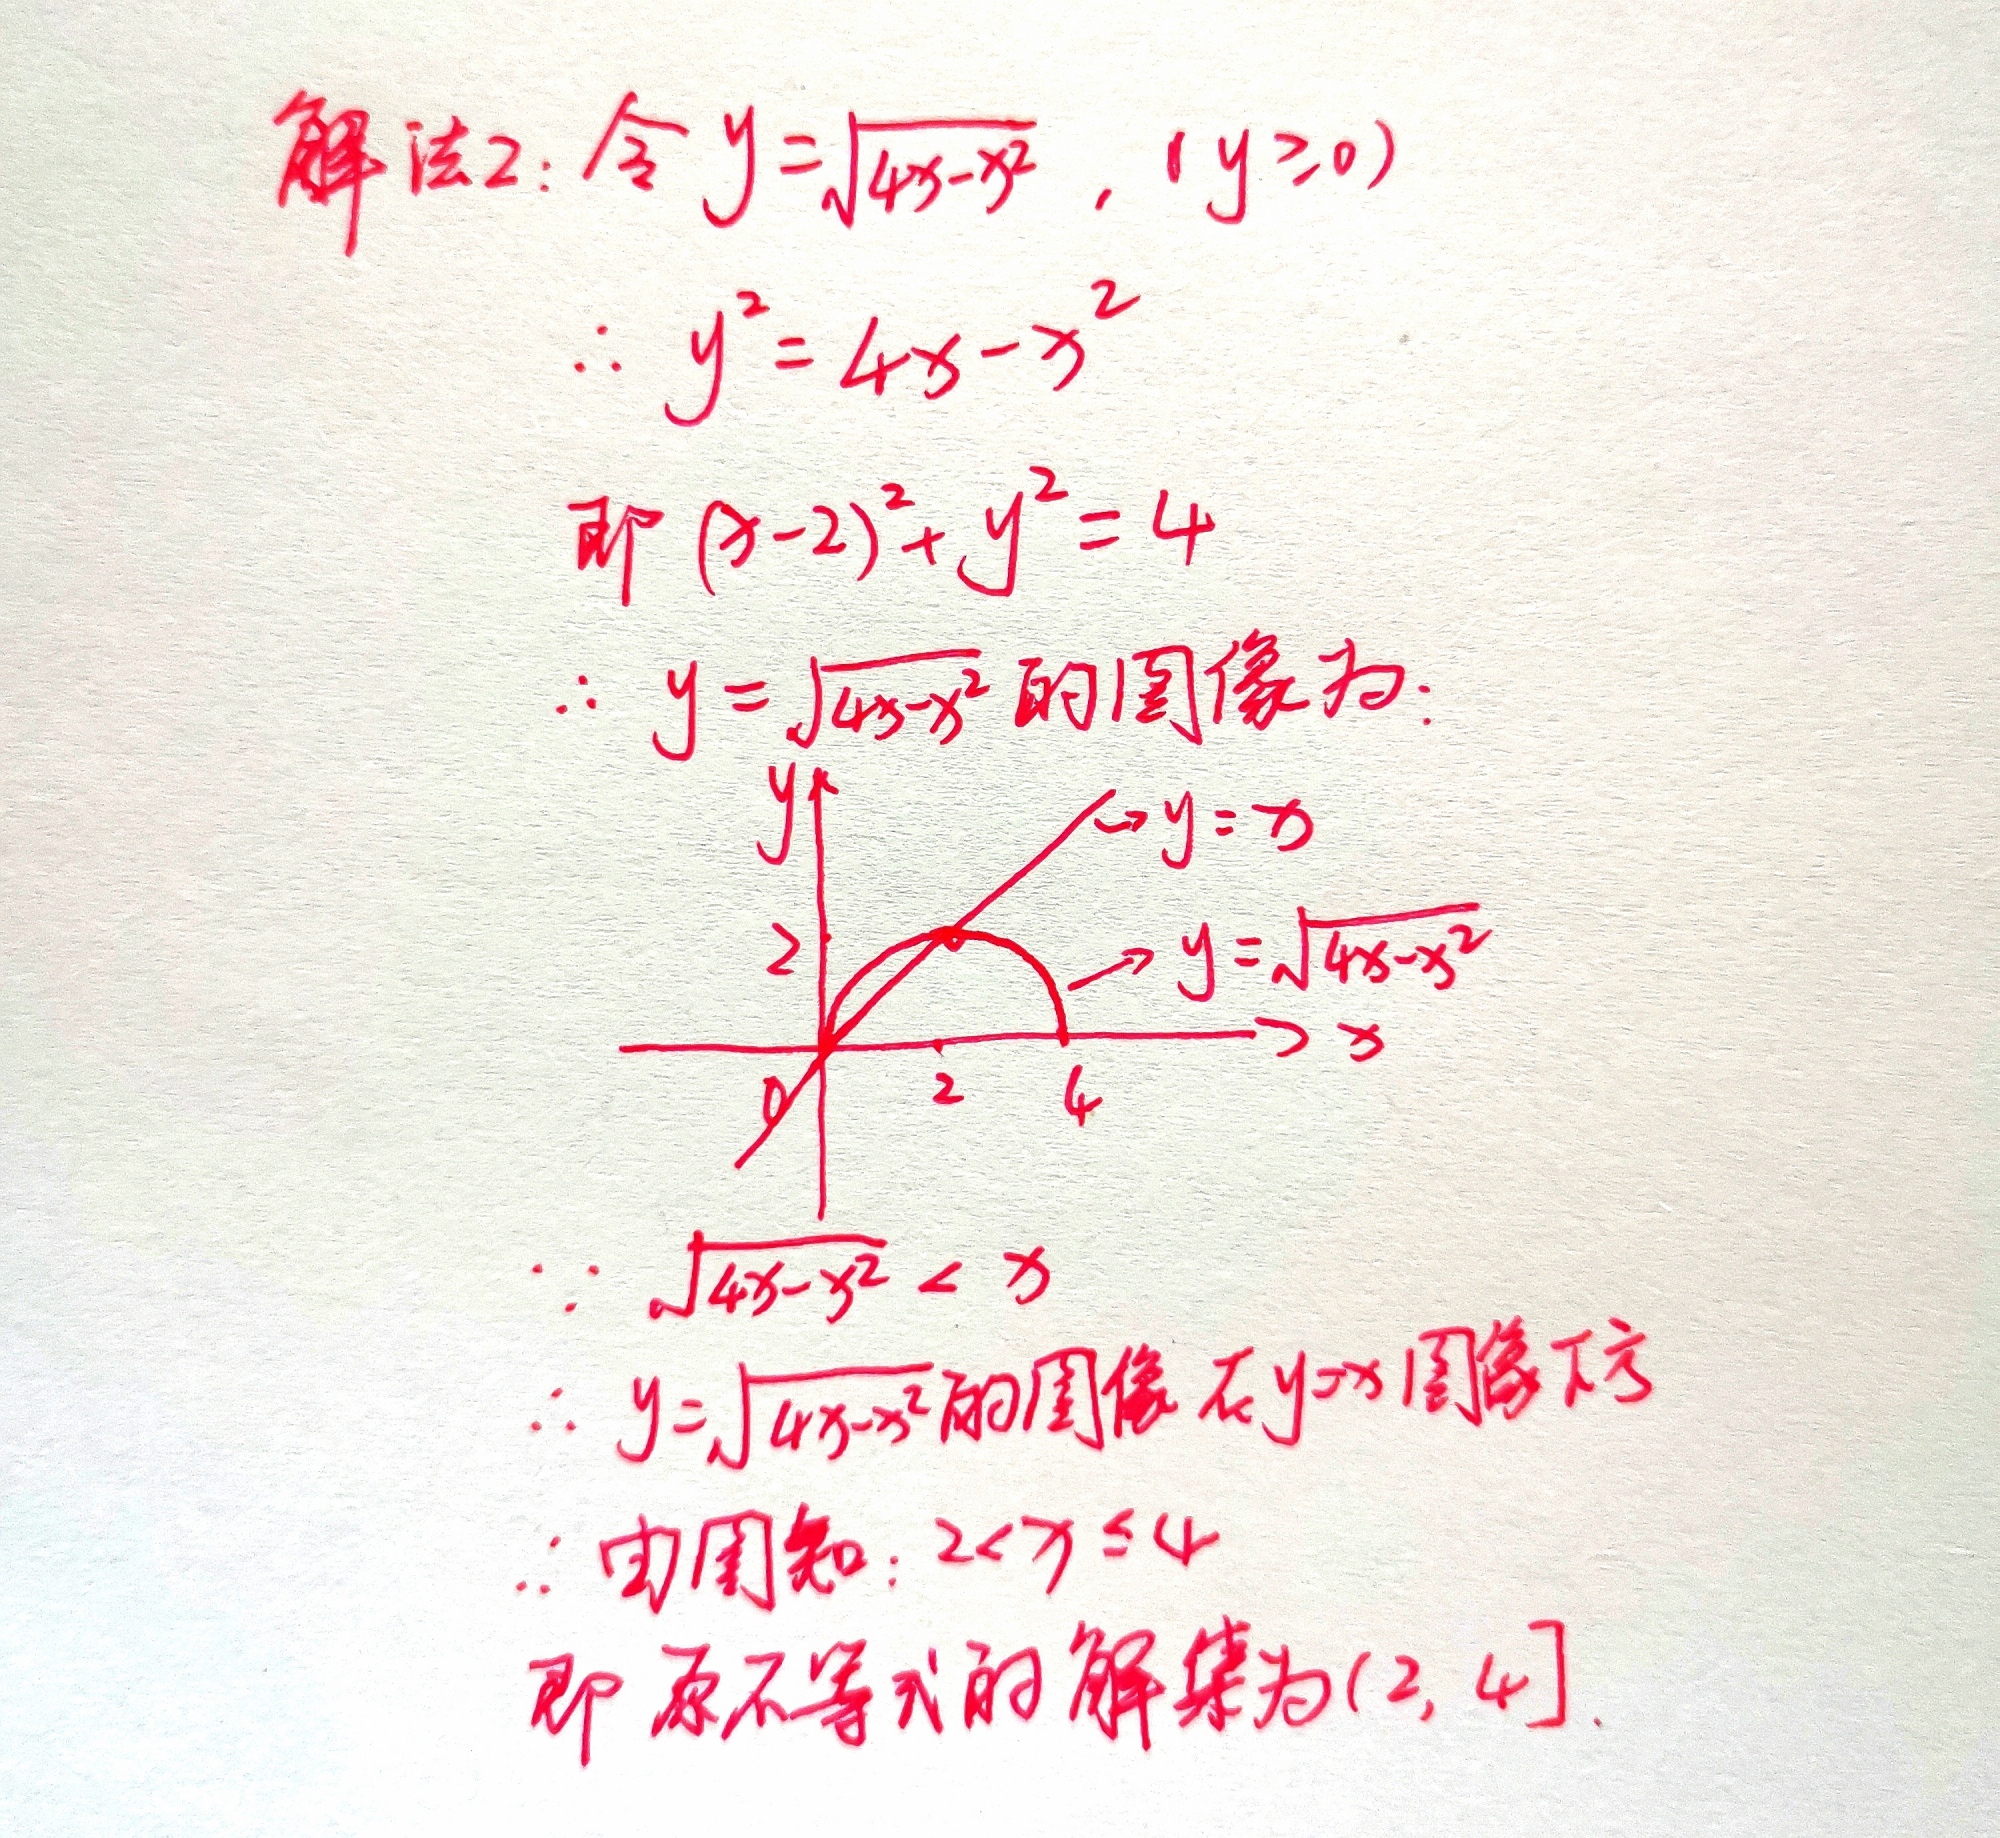 解法2:令 y=√(4x-x²) ,(y≥0)
∴ y²=4x-x²
即 (x-2)²+y²=4
∴ y=√(4x-x²) 的图像为:
y
→y=x
2
→y=√(4x-x²)
x
0
2
4
∵ √(4x-x²) < x
∴ y=√(4x-x²)的图像在y=x图像下方
∴ 由图知: 2<x≤4
即原不等式的解集为(2,4].